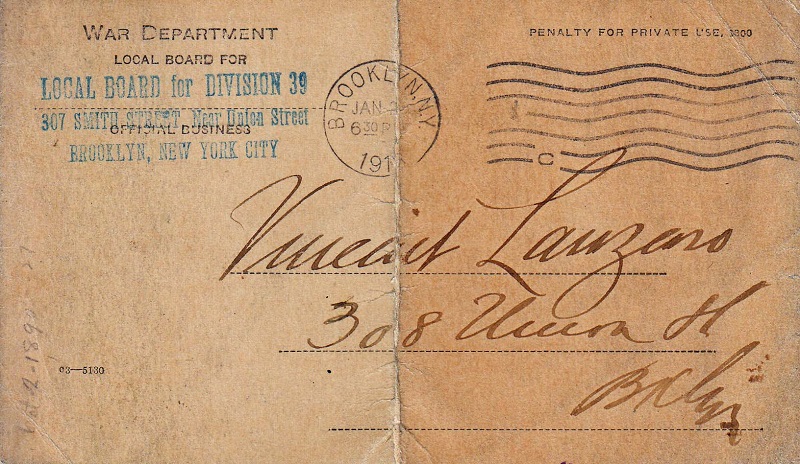 WAR DEPARTMENT
LOCAL BOARD FOR
LOCAL BOARD for DIVISION 39
307 SMITH STREET, Near Union Street
OFFICIAL BUSINESS
BROOKLYN, NEW YORK CITY
PENALTY FOR PRIVATE USE, $300
BROOKLYN, N.Y.
JAN
6 30 P
191
C
Vincent Lanzaro
308 Union St
Bklyn
93—5130